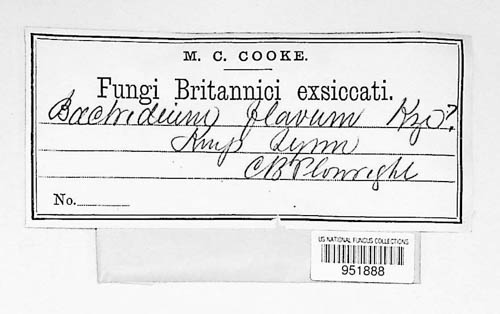 M. C. COOKE.
Fungi Britannici exsiccati.
Bactridium flavum Kze?
King's Lynn
C B Plowright
No.
US NATIONAL FUNGUS COLLECTIONS
951888